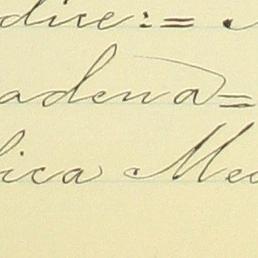 dice:=
adena=
lica Me